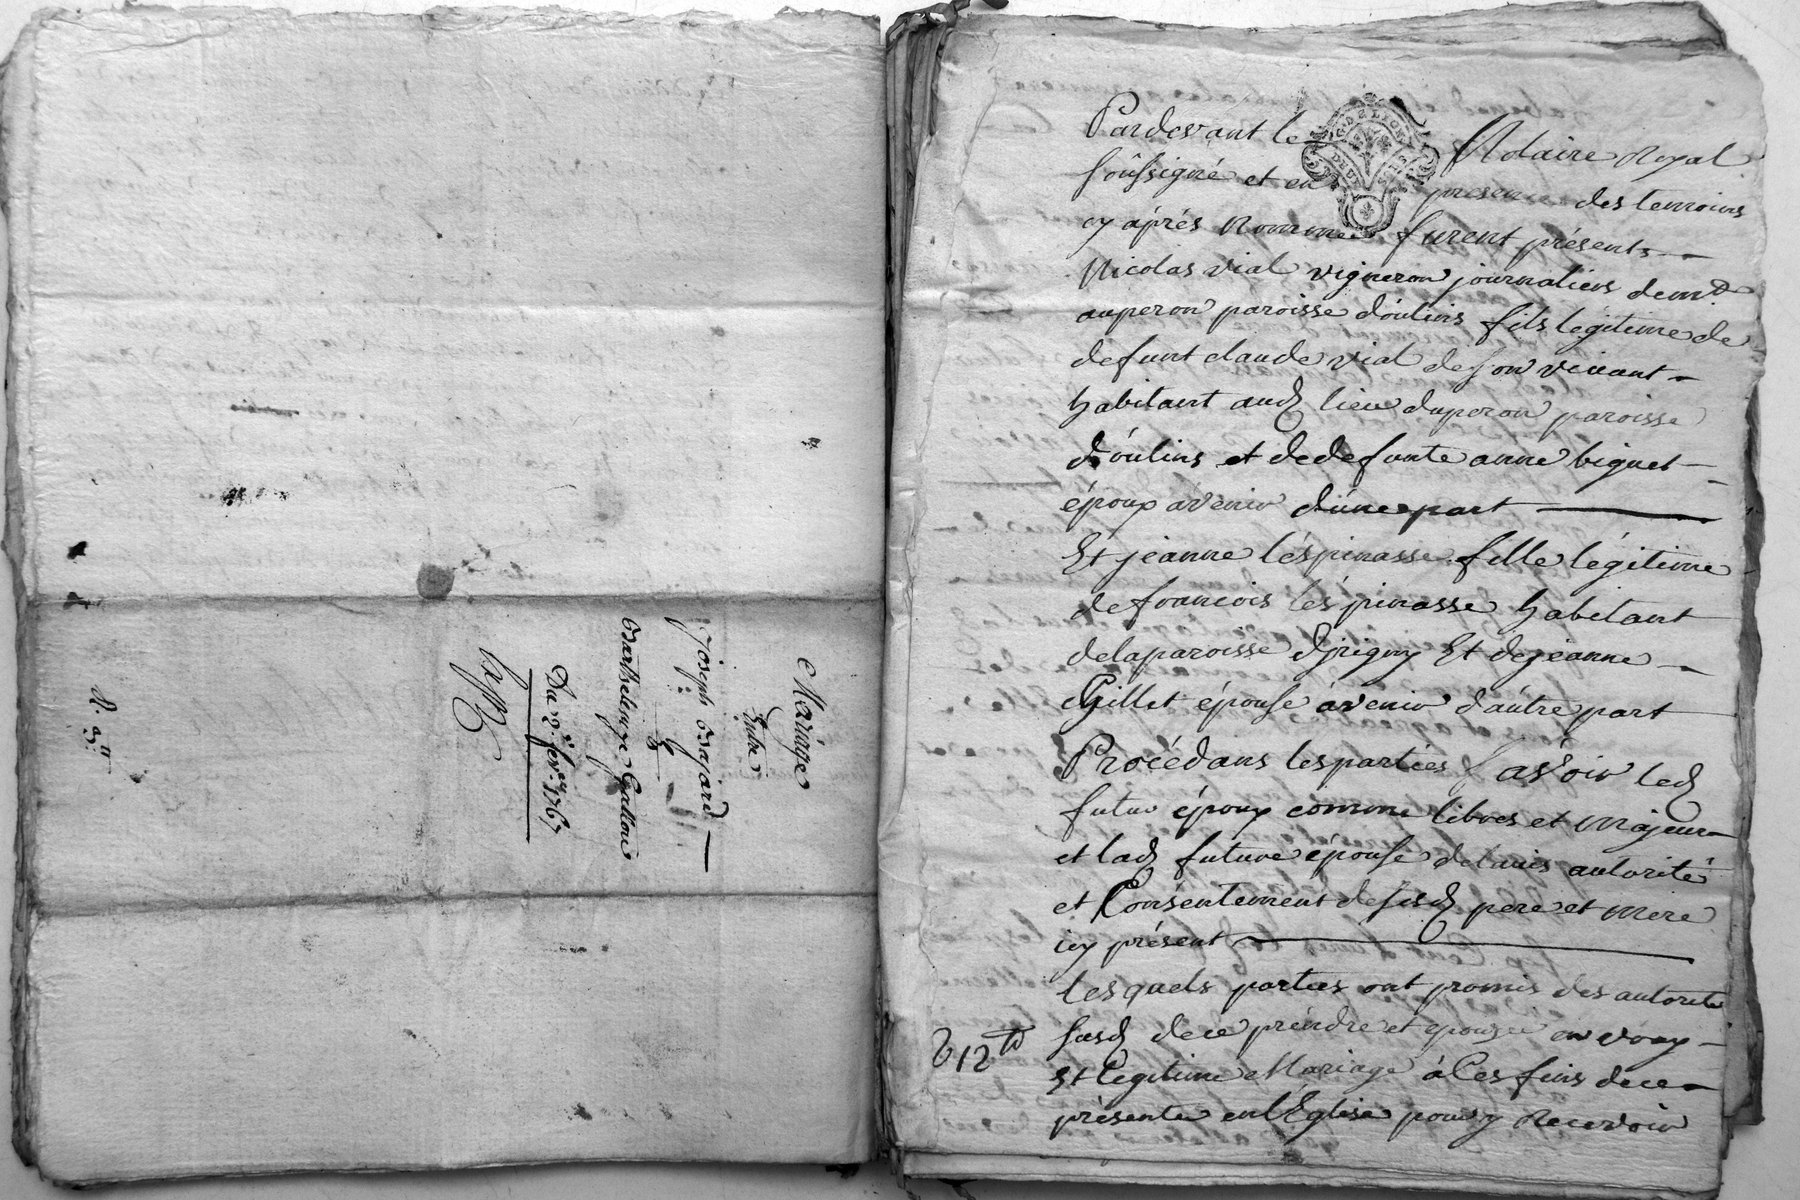 Mariage
Entre
Joseph Bajard
&
Barthelemye Gallon
Du 2e. fevr. 1767
Pardevant le Notaire Royal
soûssigné et en presence des temoins
cy aprés nommés furent présents
Nicolas vial vigneron journaliers dem.t
auperon paroisse d'oulins fils légitime de
defunt claude vial de son vivant
habitant aud. lieu duperon paroisse
d'oulins et dedefunte anne biguet
époux avenir d'une part
Et jeanne léspinasse fille légitime
defrancois léspinasse habitant
delaparoisse d'jrigny Et dejeanne
Gillet épouse àvenir d'autre part
Procédans lesparties sçavoir led.
futur époux comme libres et majeur
et lad. future épouse del'avis autorité
et Consentement desesd. pere et mere
icy présent
lesquels parties ont promis des autorité
susd. dece préndre et epouzer en vray
Et legitime Mariage à Ces fins dece
présenter enl'Église pour y recevoir
612 tt
DE LION